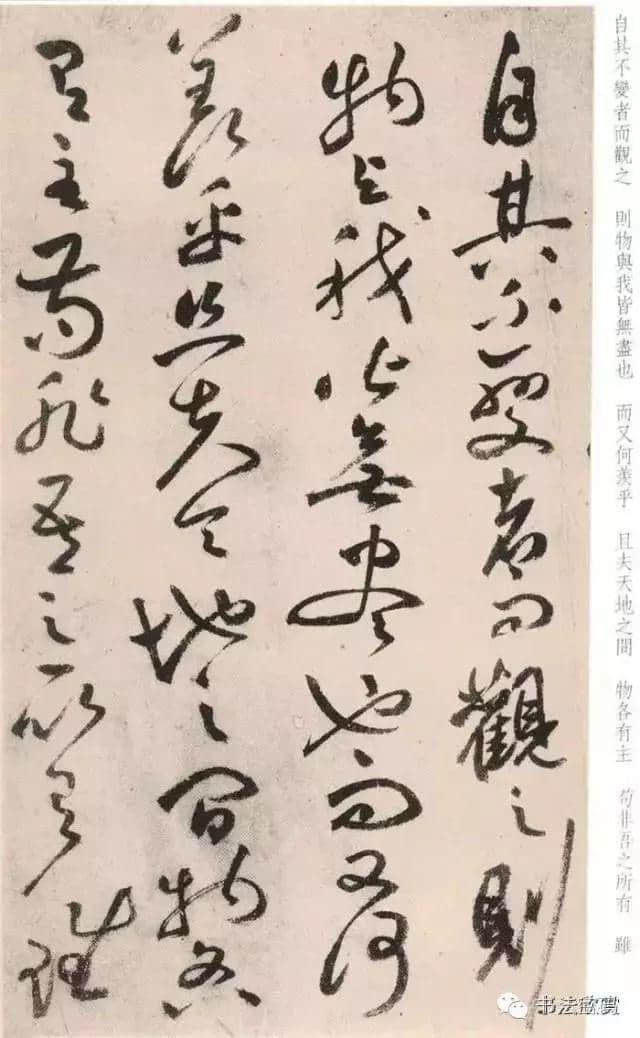 自其不變者而觀之則
物與我皆無盡也而又何
羨乎且夫天地之間物各
有主苟非吾之所有雖
自其不變者而觀之 則物與我皆無盡也 而又何羨乎 且夫天地之間 物各有主 苟非吾之所有 雖
书法欣赏